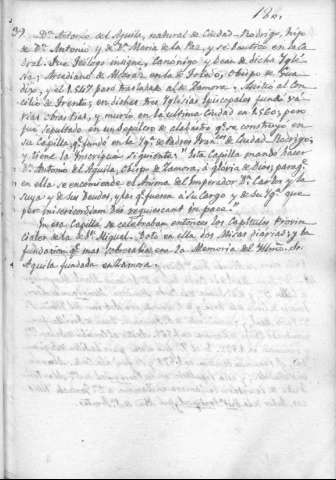 180.
39. Dn. Antonio del Aguila, natural de Ciudad-Rodrigo, hijo
de Dn. Antonio y de Da. Maria de la Paz, y se bautizó en la Ca-
dral. Fue Teólogo insigne, Canónigo y Dean de dicha Igle-
sia, Arcediano de Alcaraz en la de Toledo, Obispo de Gua-
dix, y el 1547 paso trasladado al de Zamora. Asistio al Con-
cilio de Trento; en dichas tres Iglesias Episcopales fundó va-
rias Obras pias, y murió en la ultima Ciudad en 1560; pero
fue sepultado en un Sepulcro de alabastro qe. se construyo en
su Capilla, qe. fundó en la Yga. de Padres Franos. de Ciudad Rodrigo,
y tiene la Inscripcion siguiente: "Esta Capilla mandó hacer
Dn. Antonio del Aguila, Obispo de Zamora, á gloria de Dios; paraqe.
en ella se encomiende el Anima del Emperador Dn. Carlos y la
suya y de sus Deudos, y las qe. fueren á su Cargo y de su Yga. que
per misericordiam Dei requiescant in pace."
En esa Capilla se celebraban entonces los Capitulos Provin-
ciales de la de Sn. Miguel. Dotó en ella dos Misas diarias; y la
fundacion qe. mas sobresalia era la Memoria del Yllmo. Sr.
Aguila fundada en Zamora.